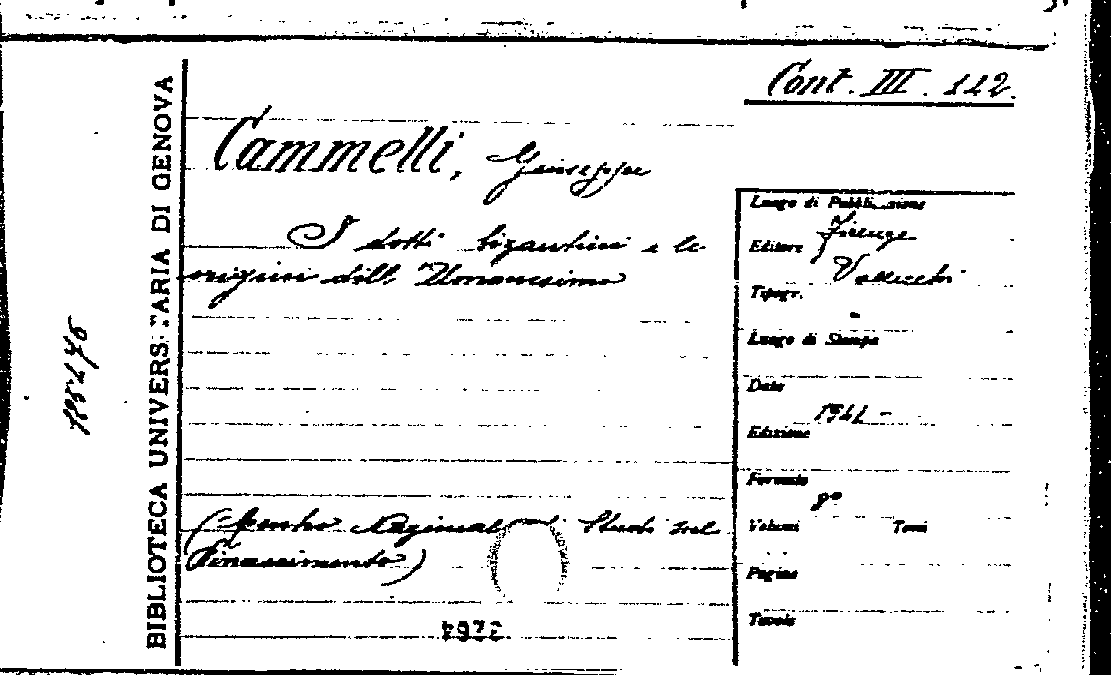 Cont. III. 112.
BIBLIOTECA UNIVERSITARIA DI GENOVA
Cammelli, Giuseppe
I dotti bizantini e le
origini dell'Umanesimo
(Centro Nazionale Studi sul
Rinascimento)
Luogo di Pubblicazione
Firenze
Editore
Vallecchi
Tipogr.
Luogo di Stampa
Data
1941 -
Edizione
Formato
8º
Volumi Tomi
Pagine
Tavole